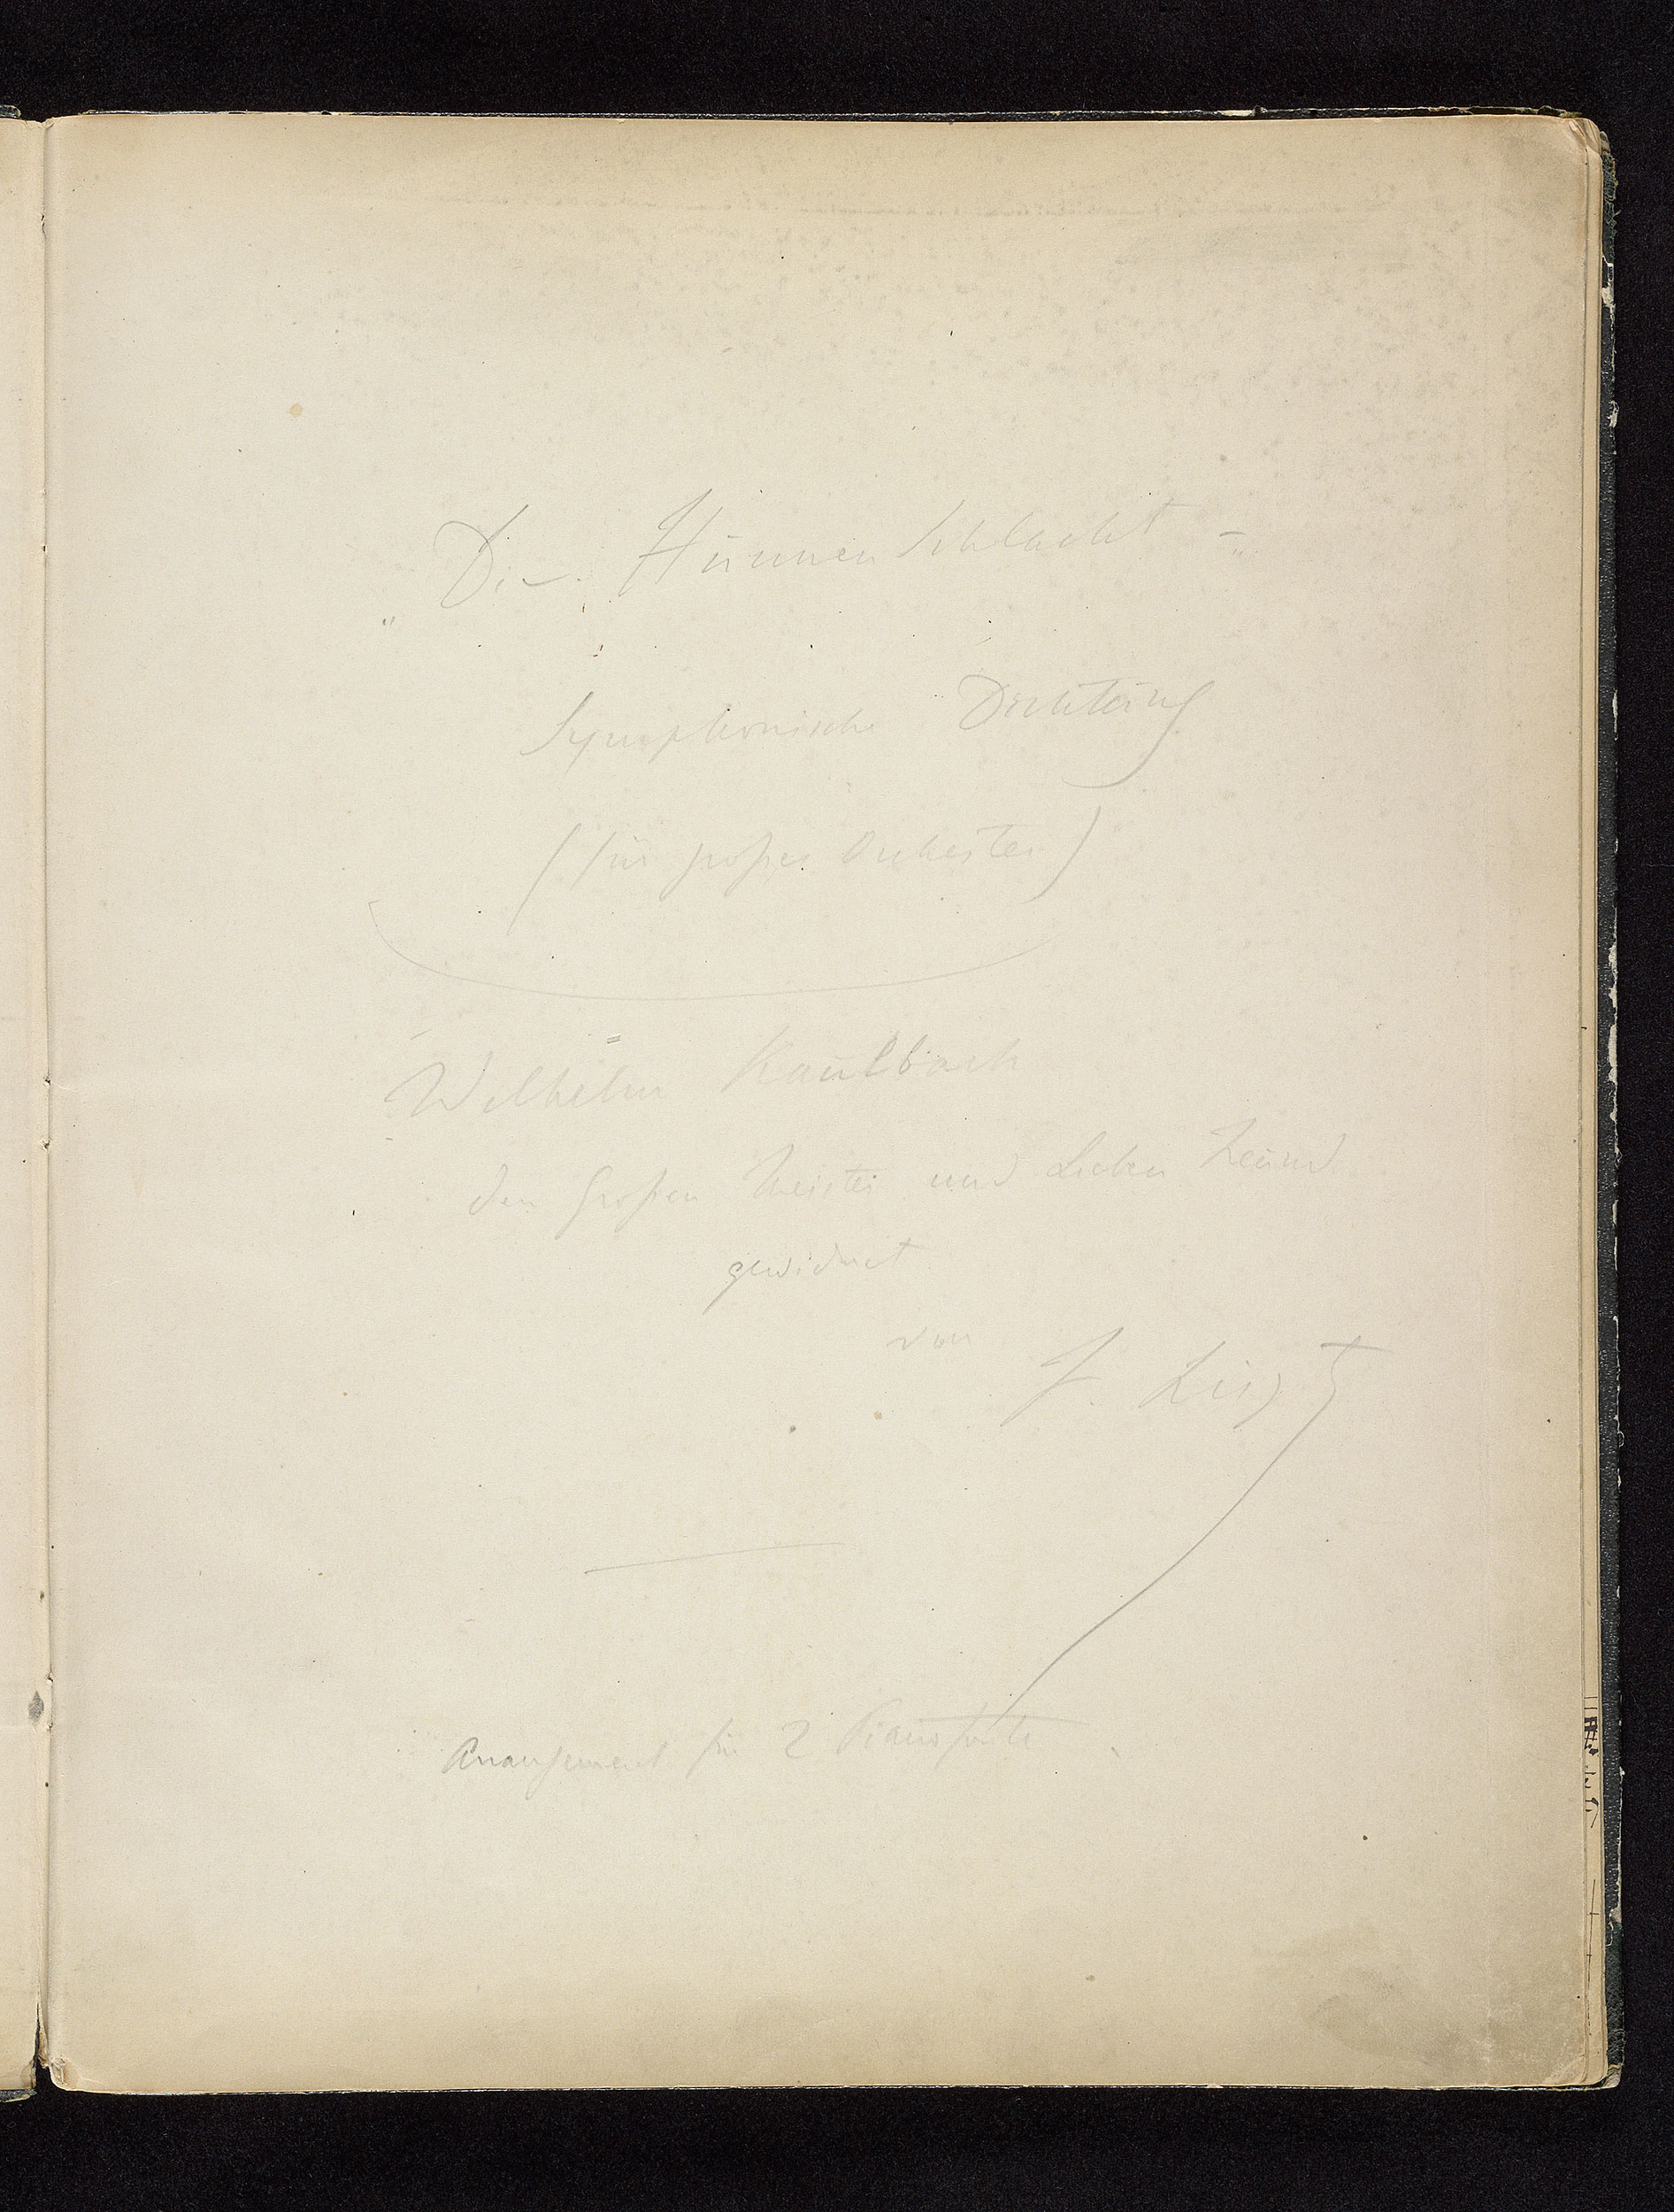 „Die Hunnen Schlacht -"
Symphonische Dichtung
(für großes Orchester)
Wilhelm Kaulbach
den großen Meister und lieben Freund
gewidmet
von F. Liszt
Arrangement für 2 Pianoforte